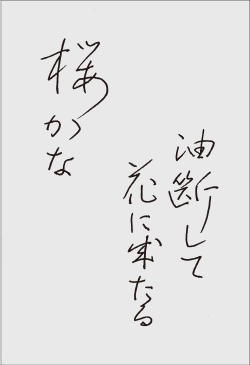 油断して
花に成たる
桜かな